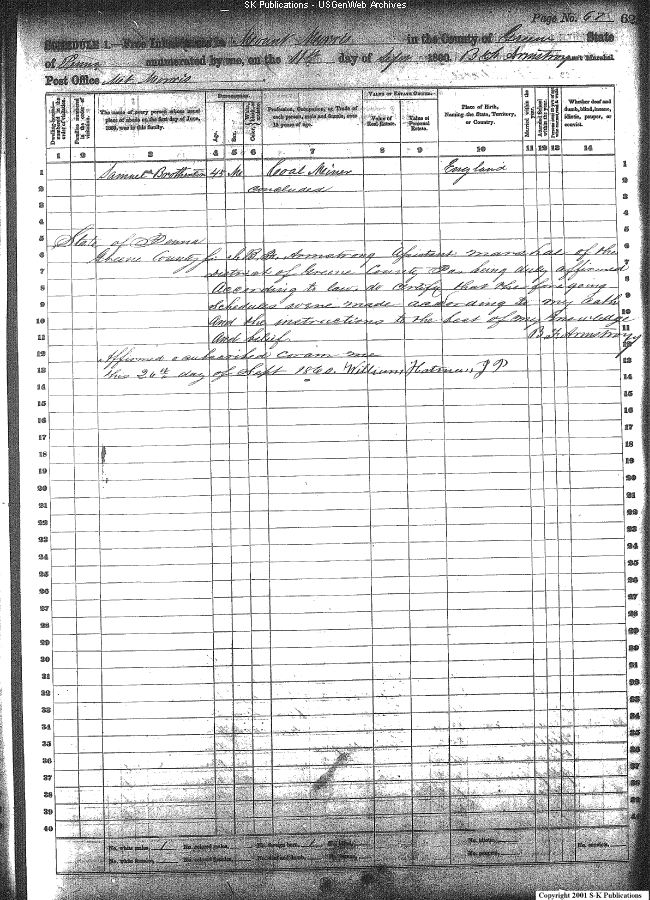 SK Publications - USGenWeb Archives
Page No. 62
SCHEDULE 1.—Free Inhabitants in Mount Morris in the County of Greene State
of Penna enumerated by me, on the 11th day of Sepr 1860. Ass't Marshal.
Post Office Mt. Morris
The name of every person whose usual place of abode on the first day of June, 1860, was in this family.
DESCRIPTION.
Age.
Sex.
Profession, Occupation, or Trade of each person, male and female, over 15 years of age.
VALUE OF ESTATE OWNED.
Value of Real Estate.
Value of Personal Estate.
Place of Birth, Naming the State, Territory, or Country.
Married within the year.
Whether deaf and dumb, blind, insane, idiotic, pauper, or convict.
1 2 3 4 5 6 7 8 9 10 11 12 13 14
1 Samuel Brotherton 45 M Coal Miner England 1
2 concluded 2
3 3
4 4
5 State of Penna 5
6 Greene County I B. F. Armstrong assistant marshal of the 6
7 district of Greene County Pa. being duly affirmed 7
8 According to law, do certify that the foregoing 8
9 Schedules were made according to my oath 9
10 And the instructions to the best of my knowledge 10
11 And belief. B F Armstrong 11
12 Affirmed & subscribed before me 12
13 this 26th day of Sept 1860. William J P 13
14 14
15 15
16 16
17 17
18 18
19 19
20 20
21 21
22 22
23 23
24 24
25 25
26 26
27 27
28 28
29 29
30 30
31 31
32 32
33 33
34 34
35 35
36 36
37 37
38 38
39 39
40 40
No. white males, 1 No. colored males, No. foreign born, 1 No. blind, No. idiotic, No. convicts,
No. white females, No. colored females, No. deaf and dumb, No. insane, No. paupers,
Copyright 2001 S-K Publications